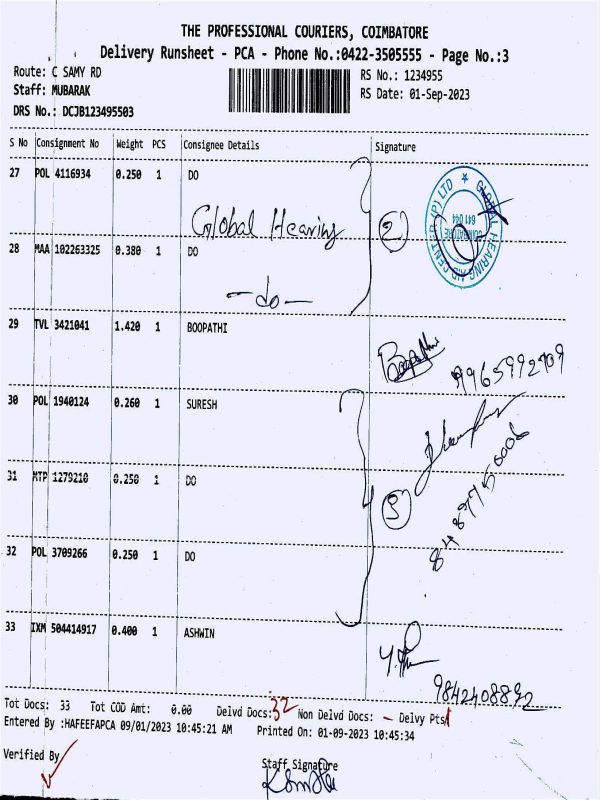 THE PROFESSIONAL COURIERS, COIMBATORE
Delivery Runsheet - PCA - Phone No.:0422-3505555 - Page No.:3
Route: C SAMY RD
RS No.: 1234955
Staff: MUBARAK
RS Date: 01-Sep-2023
DRS No.: DCJB123495503
S No Consignment No Weight PCS Consignee Details Signature
27 POL 4116934 0.250 1 DO
Global Hearing
2
GLOBAL HEARING AID CENTER (P) LTD
COIMBATORE
641 044
28 MAA 102263325 0.380 1 DO
-do-
29 TVL 3421041 1.420 1 BOOPATHI
9965992709
30 POL 1940124 0.260 1 SURESH
31 MTP 1279210 0.250 1 DO
3
8489775000
32 POL 3709266 0.250 1 DO
33 IXM 504414917 0.400 1 ASHWIN
9842408892
Tot Docs: 33 Tot COD Amt: 0.00 Delvd Docs: 32 Non Delvd Docs: - Delvy Pts
Entered By :HAFEEFAPCA 09/01/2023 10:45:21 AM Printed On: 01-09-2023 10:45:34
Verified By
Staff Signature